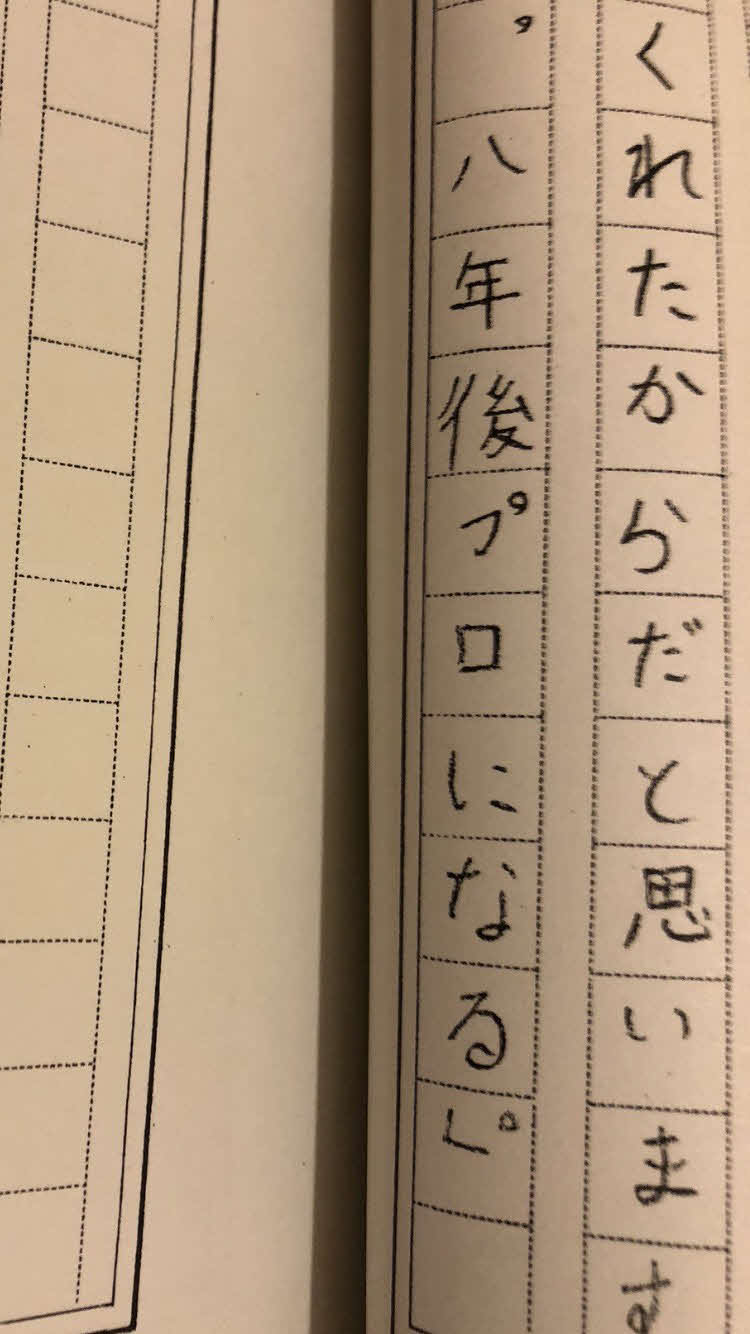 くれたからだと思います
。八年後プロになる。」